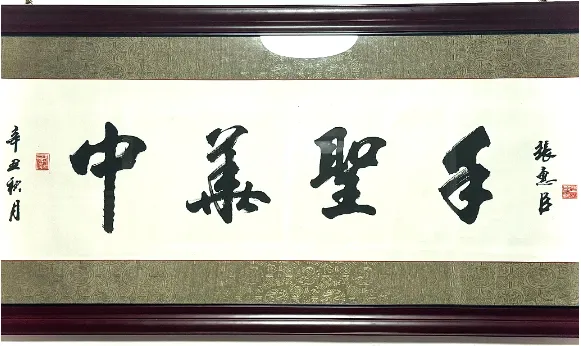 辛丑秋月
中華聖手
張惠臣